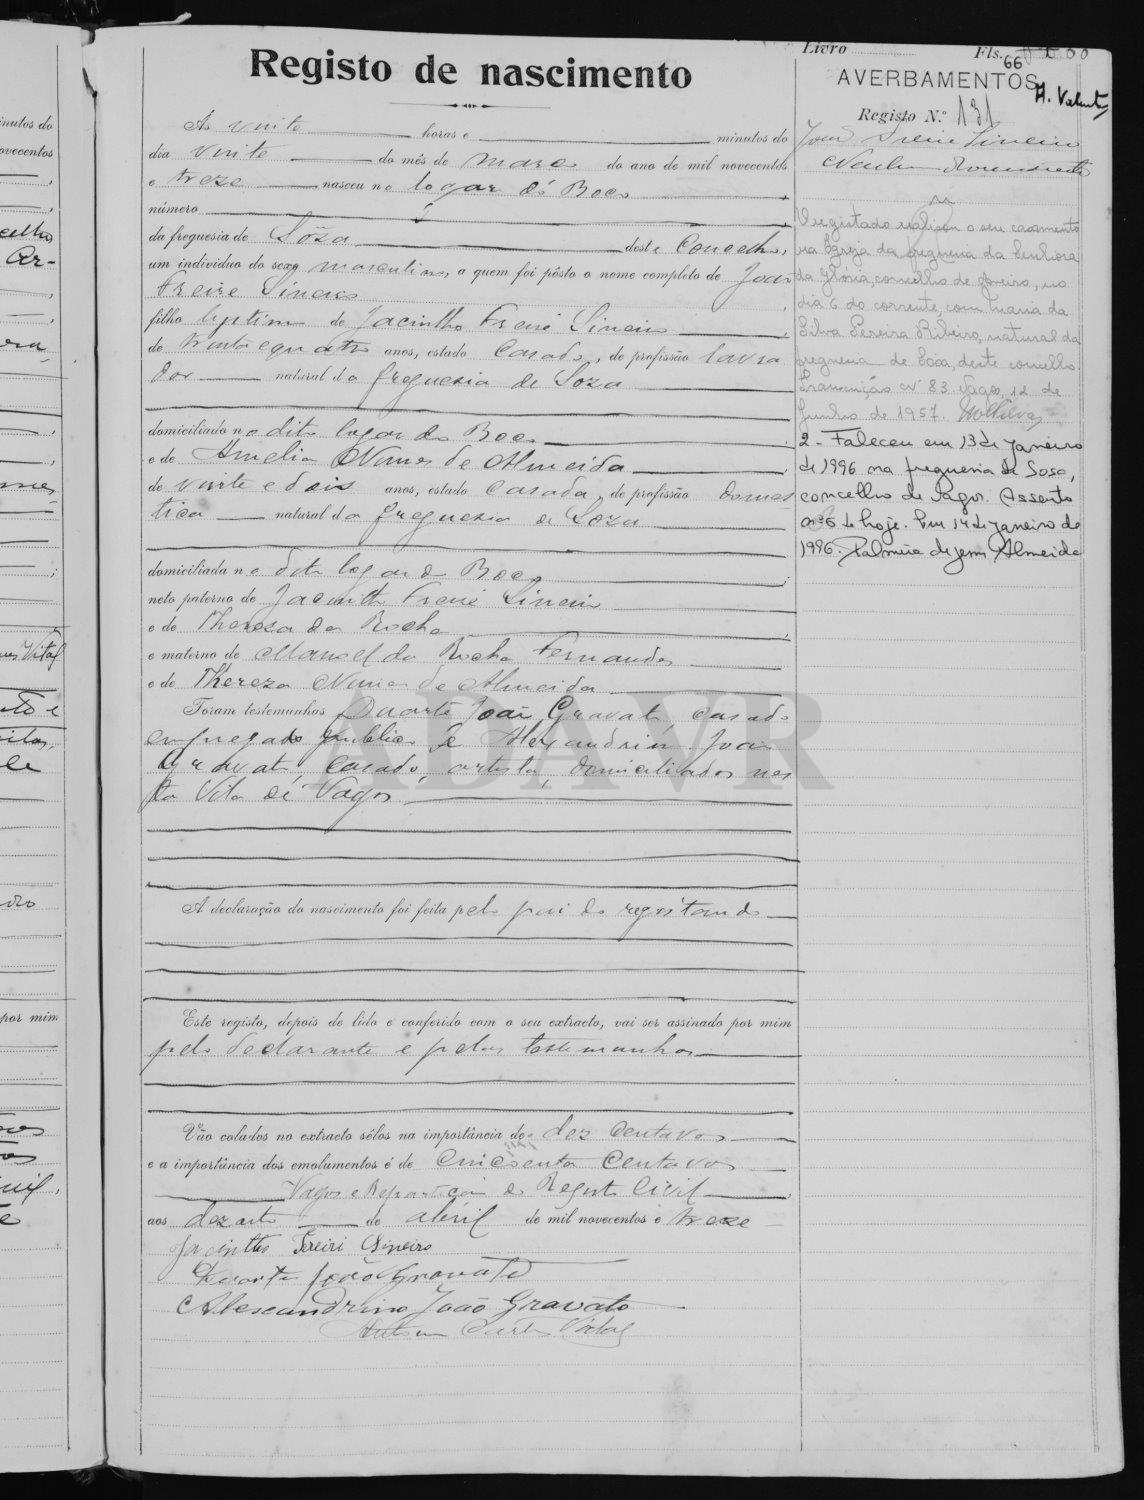 Livro Fls. 66
Registo de nascimento
AVERBAMENTOS
Registo N.º 131
Ás vinte horas e minutos do
dia vinte do mês de março do ano de mil novecentos
e treze nasceu no logar de Boco
número
da freguesia de Sôza deste Concelho,
um individuo do sexo masculino, a quem foi pôsto o nome completo de João
Freire Sineiro
filho de Jacintho Freire Sineiro
de trinta e quatro anos, estado casado, de profissão lavra
dor natural da freguesia de Soza
domiciliado no dito logar do Boco
e de Amelia Nunes de Almeida
de vinte e dois anos, estado casada, de profissão domes
tica natural da freguesia de Soza
domiciliada no dito logar do Boco
neto paterno de Jacintho Freire Sineiro
e de Thereza da Rocha
e materno de Manoel da Rocha Fernandes
e de Thereza Nunes de Almeida
Foram testemunhas Duarte João Gravato, casado
empregado publico e Alexandrino João
Gravato casado, artista, domiciliados nes
ta Vila de Vagos
A declaração do nascimento foi feita pelo pai do registando
Este registo, depois de lido e conferido com o seu extracto, vai ser assinado por mim
pelo declarante e pelas testemunhas
Vão colados no extracto sêlos na importância de dez centavos
e a importância dos emolumentos é de cincoenta centavos
Vagos e Repartição do Registo Civil
aos de abril de mil novecentos e treze
Jacintho Freiri Sineiro
Duarte João Gravato
Alexandrino João Gravato
João Freire Sineiro
O registado realizou o seu casamento
na Igreja da freguesia da Senhora
da Glória, concelho de Aveiro, no
dia 6 do corrente, com Maria da
Silva Pereira Ribeiro, natural da
freguesia de Soza, deste concelho.
Transcrição nº 83. Vagos, 12 de
Junho de 1957.
2 - Faleceu em 13 de Janeiro
de 1996 na freguesia de Sosa,
concelho de Vagos. Assento
nº 6 de hoje. Em 14 de Janeiro de
1996. Palmira de Jesus Almeida
ADAVR